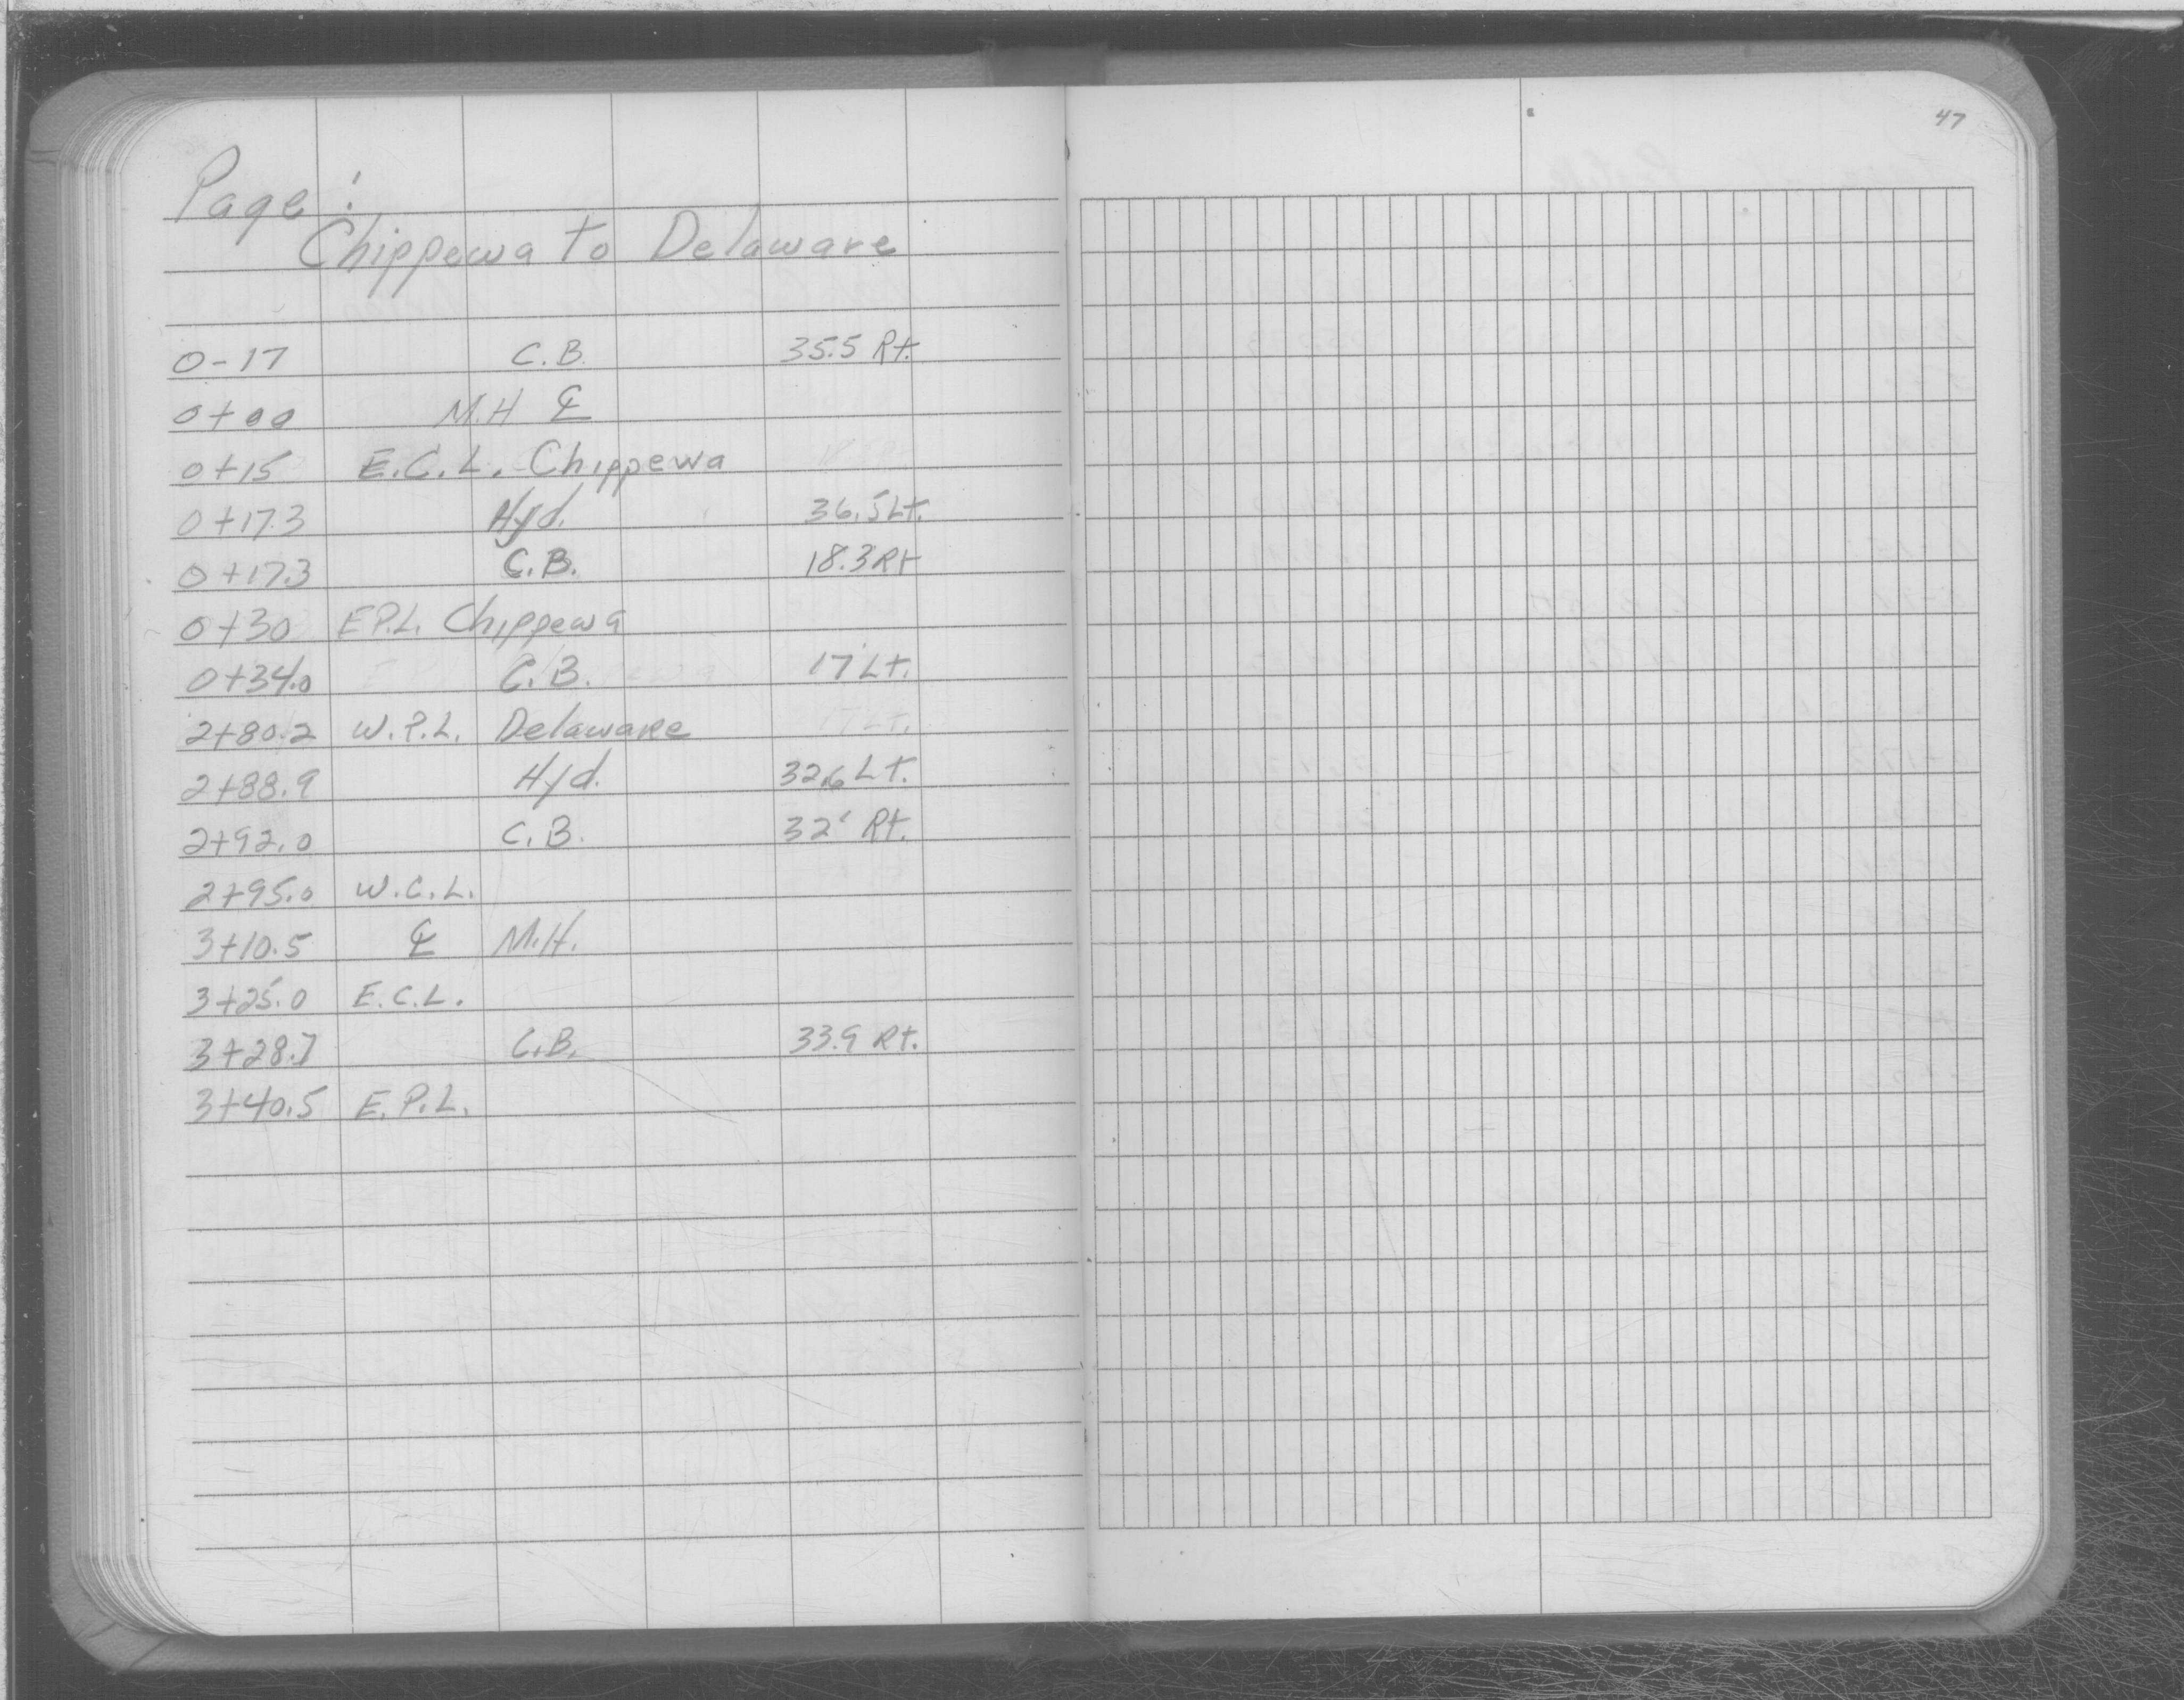 47
Page:
Chippewa to Delaware
0-17 C.B. 35.5 Rt.
0+00 M.H ℄
0+15 E.C.L. Chippewa
0+17.3 Hyd. 36.5 Lt.
0+17.3 C.B. 18.3 Rt
0+30 E.P.L. Chippewa
0+34.0 C.B. 17' Lt.
2+80.2 W.P.L. Delaware
2+88.9 Hyd. 32.6 Lt.
2+92.0 C.B. 32' Rt.
2+95.0 W.C.L.
3+10.5 ℄ M.H.
3+25.0 E.C.L.
3+28.7 C.B. 33.9 Rt.
3+40.5 E.P.L.